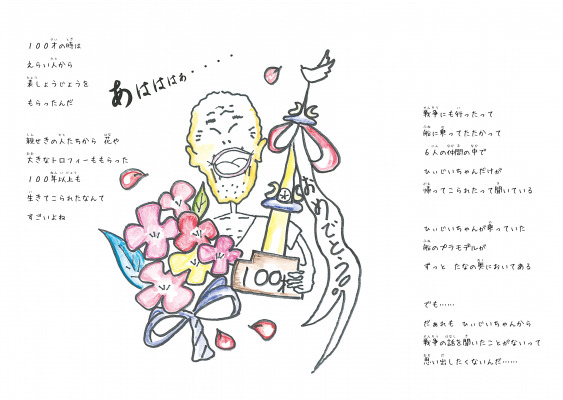 100才の時は
えらい人から
表しょうじょうを
もらったんだ
親せきの人たちから 花や
大きなトロフィーももらった
100年以上も
生きてこられたなんて
すごいよね
あはははぁ・・・・・
おめでとう!!
100歳
戦争にも行ったって
船に乗ってたたかって
6人の仲間の中で
ひいじいちゃんだけが
帰ってこられたって聞いている
ひいじいちゃんが乗っていた
船のプラモデルが
ずっと たなの奥においてある
でも……
だぁれも ひいじいちゃんから
戦争の話を聞いたことがないって
思い出したくないんだ……